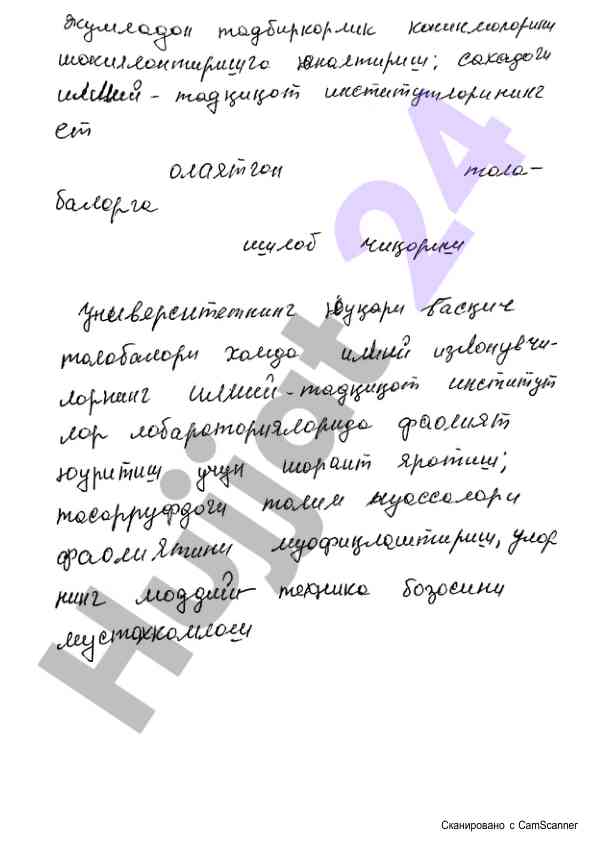 Жумладан тадбиркорлик кўникмаларини
шакиллантиришга юналтириш; сахадаги
илмий - тадқиқот институтларининг
ет
олаятган тала-
баларга
ишлаб чиқариш
Университетнинг юқари басқич
талабалари хамда илмий изланувчи-
ларнинг илмий - тадқиқот институт
лар лабараторияларида фаолият
юуритиш учун шароит яратиш;
тасарруфдаги талим муассалари
фаолиятини муофиқлаштириш, улар
нинг моддий техника базасини
мустахкамлаш
Hujjat 24
Сканировано с CamScanner